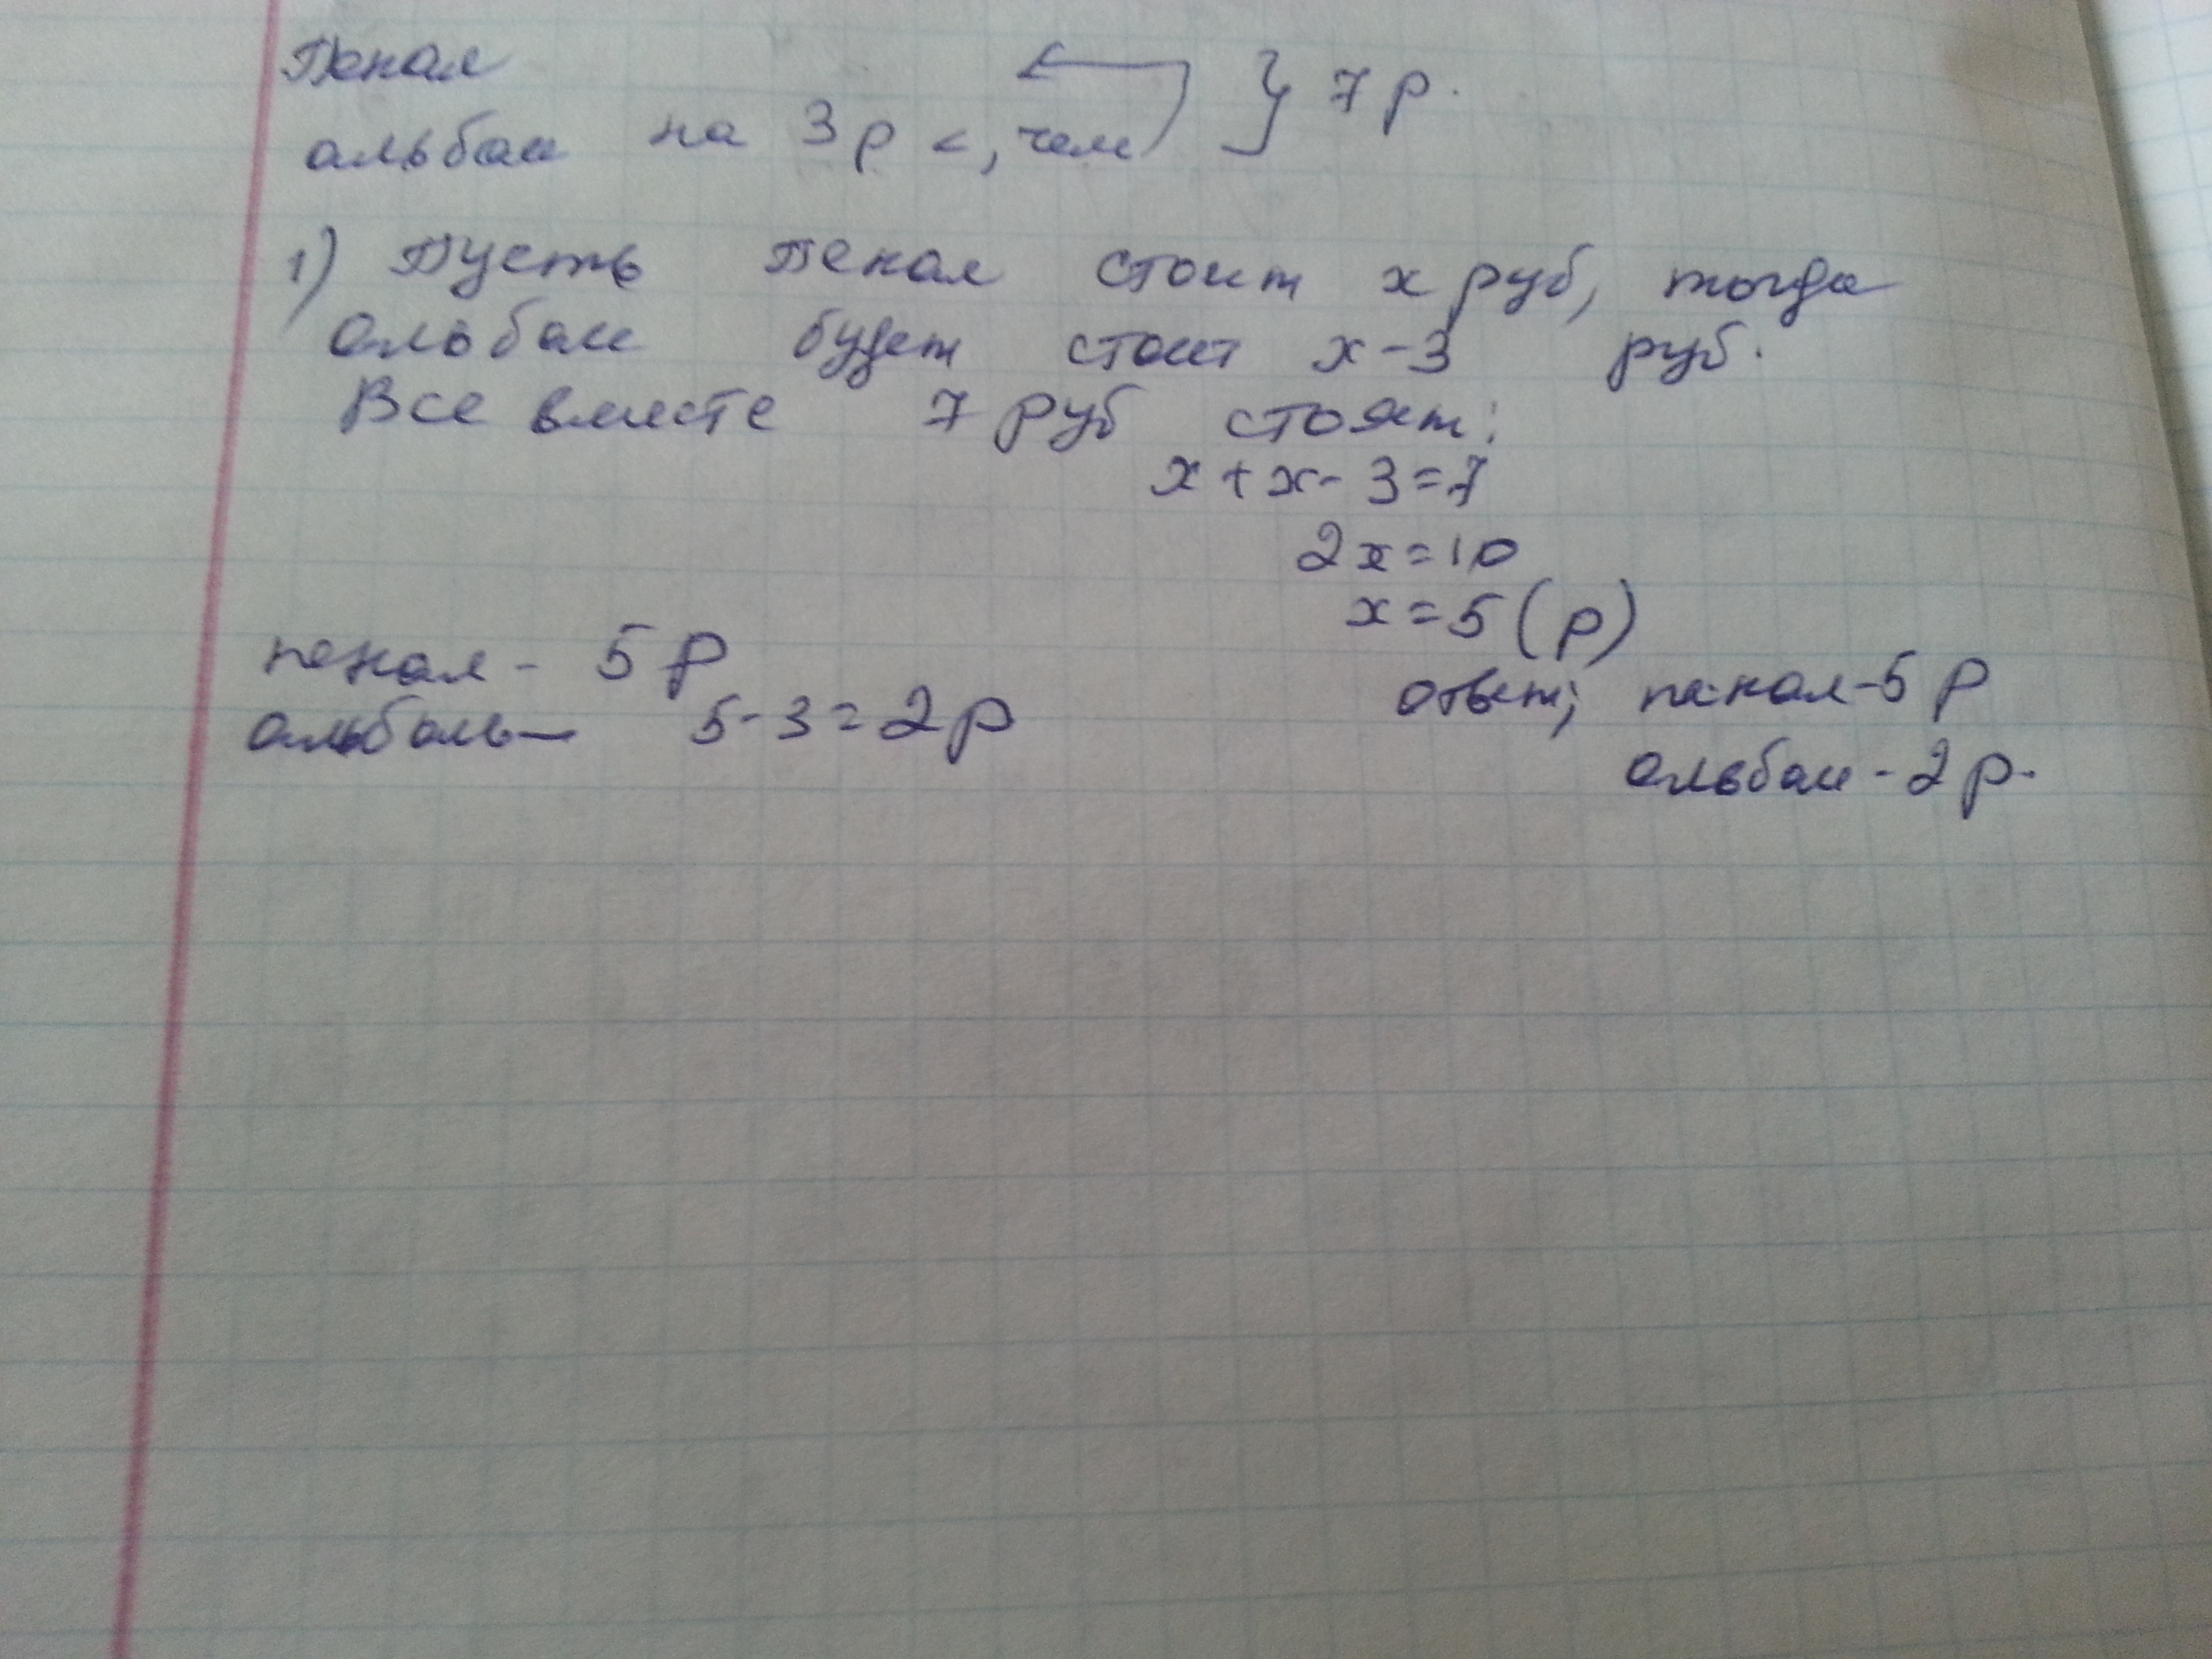 Пенал
альбом на 3р <, чем } 7р.
1) Пусть пенал стоит х руб, тогда
альбом будет стоит х-3 руб.
Все вместе 7 руб стоят:
х+х-3=7
2х=10
х=5(р)
пенал- 5р
альбомь- 5-3=2р
ответ; пенал-5р
альбом-2р.